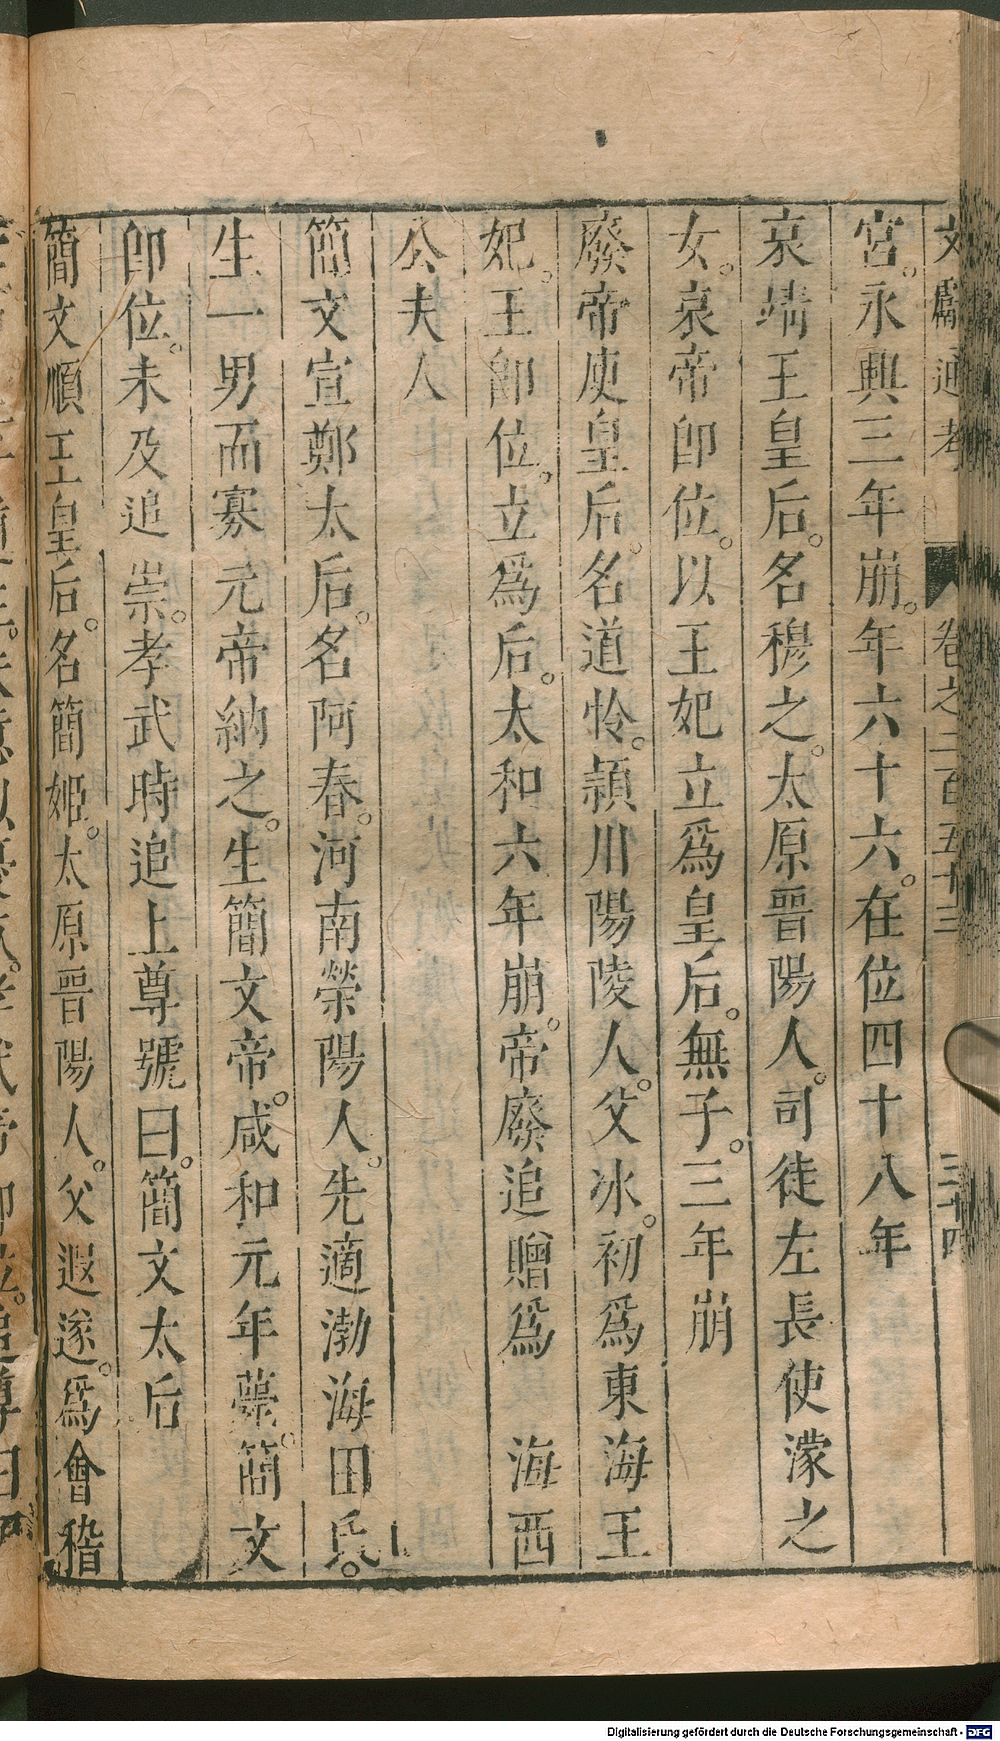 文獻通考 卷之二百五十三 三十四
宮。永興三年崩。年六十六。在位四十八年
哀靖王皇后。名穆之。太原晉陽人。司徒左長使濛之
女。哀帝卽位。以王妃立爲皇后。無子。三年崩
廢帝庾皇后。名道怜。頴川陽陵人。父冰。初爲東海王
妃。王卽位。立爲后。太和六年崩。帝廢追贈爲海西
公夫人
簡文宣鄭太后。名阿春。河南滎陽人。先適渤海田氏。
生一男而寡元帝納之。生簡文帝。咸和元年薨。簡文
卽位。未及追崇。孝武時追上尊號曰。簡文太后
簡文順王皇后。名簡姬。太原晉陽人。父遐遂。爲會稽
Digitalisierung gefördert durch die Deutsche Forschungsgemeinschaft - DFG